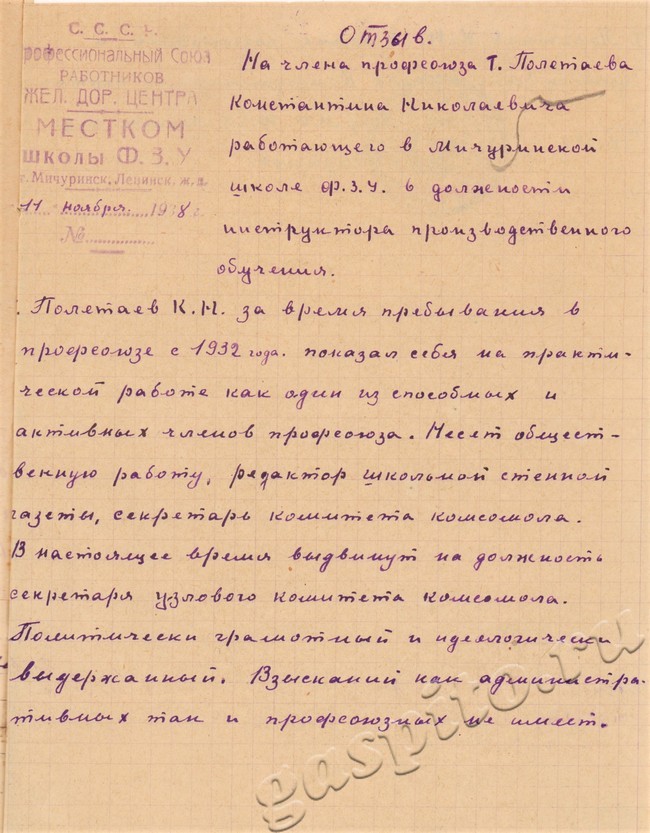 С.С.С.Р.
рофессиональный Союз
РАБОТНИКОВ
ЖЕЛ. ДОР. ЦЕНТРА
МЕСТКОМ
ШКОЛЫ Ф.З.У
г. Мичуринск, Ленинск. ж.д.
11 ноября 1938 г.
№
Отзыв.
На члена профсоюза т. Полетаева
Константина Николаевича
работающего в Мичуринской
школе Ф.З.У. в должности
инструктора производственного
обучения.
. Полетаев К.Н. за время пребывания в
профсоюзе с 1932 года. показал себя на практи-
ческой работе как один из способных и
активных членов профсоюза. Несет общест-
венную работу, редактор школьной стенной
газеты, секретарь комитета комсомола.
В настоящее время выдвинут на должность
секретаря узлового комитета комсомола.
Политически грамотный и идеологически
выдержанный. Взысканий как администра-
тивных так и профсоюзных не имеет.
gaspito.ru